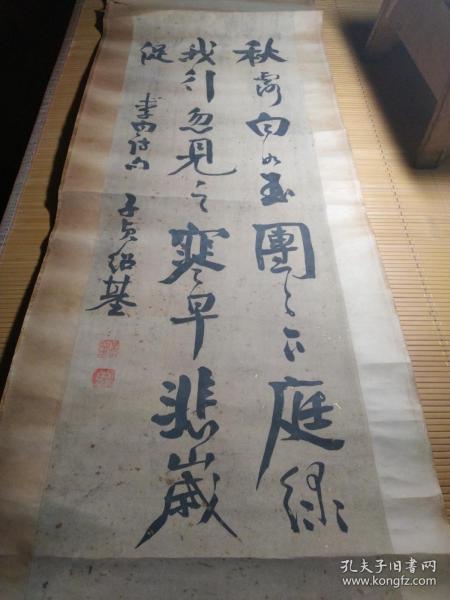 秋露白如玉團〻下庭綠
我行忽見之寒早悲歲
促
子貞紹基
孔夫子旧书网
www.kongfz.com